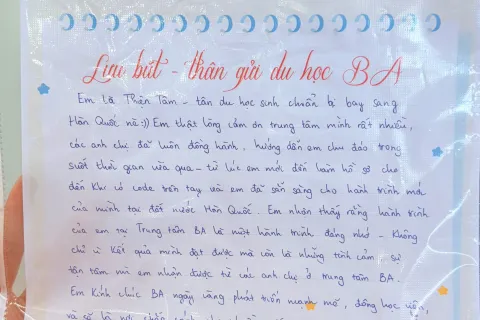 Lưu bút - thân gửi du học BA
Em là Thiện Tâm - tân du học sinh chuẩn bị bay sang
Hàn Quốc nè :)) Em thật lòng cảm ơn trung tâm mình rất nhiều,
các anh chị đã luôn đồng hành, hướng dẫn em chu đáo trong
suốt thời gian vừa qua - từ lúc em mới đến làm hồ sơ cho
đến khi có code trên tay và em đã sẵn sàng cho hành trình mới
của mình tại đất nước Hàn Quốc. Em nhận thấy rằng hành trình
của em tại Trung tâm BA là một hành trình đáng nhớ - Không
chỉ vì kết quả mình đạt được mà còn là những tình cảm, sự
tận tâm mà em nhận được từ các anh chị ở trung tâm BA.
Em kính chúc BA ngày càng phát triển mạnh mẽ, đông học viên,
và sẽ là nơi